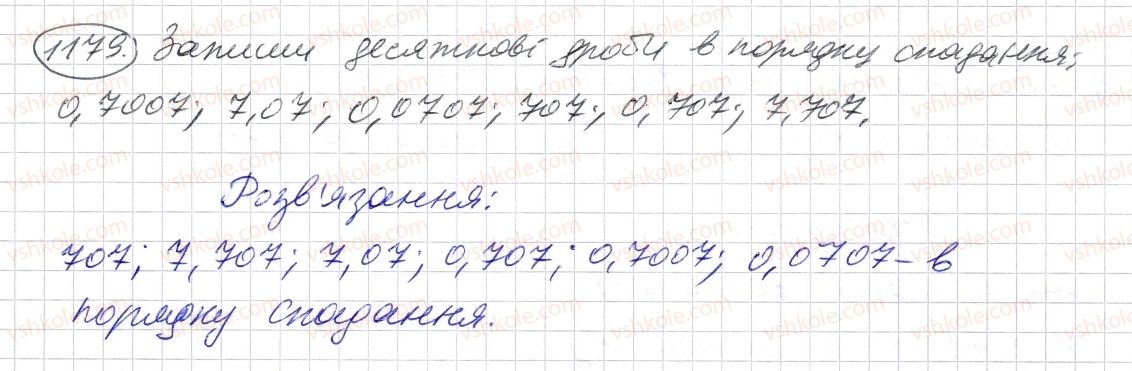 1179. Запиши десяткові дроби в порядку спадання:
0,7007; 7,07; 0,0707; 707; 0,707; 7,707.
Розв'язання:
707; 7,707; 7,07; 0,707; 0,7007; 0,0707 – в
порядку спадання.